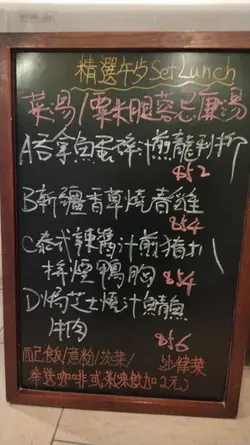 精選午歺Set Lunch
菜湯/粟米腿蓉忌廉湯
A吞拿魚蛋碎汁煎龍利柳
$52
B新疆香草燒春雞
$54
C泰式辣醬汁煎猪扒
拼煙鴨胸 $54
D焗芝士燒汁鯖魚
牛肉 $56
配飯/意粉/炎菜/ 沙律菜
奉送咖啡或茶凍飲加2元